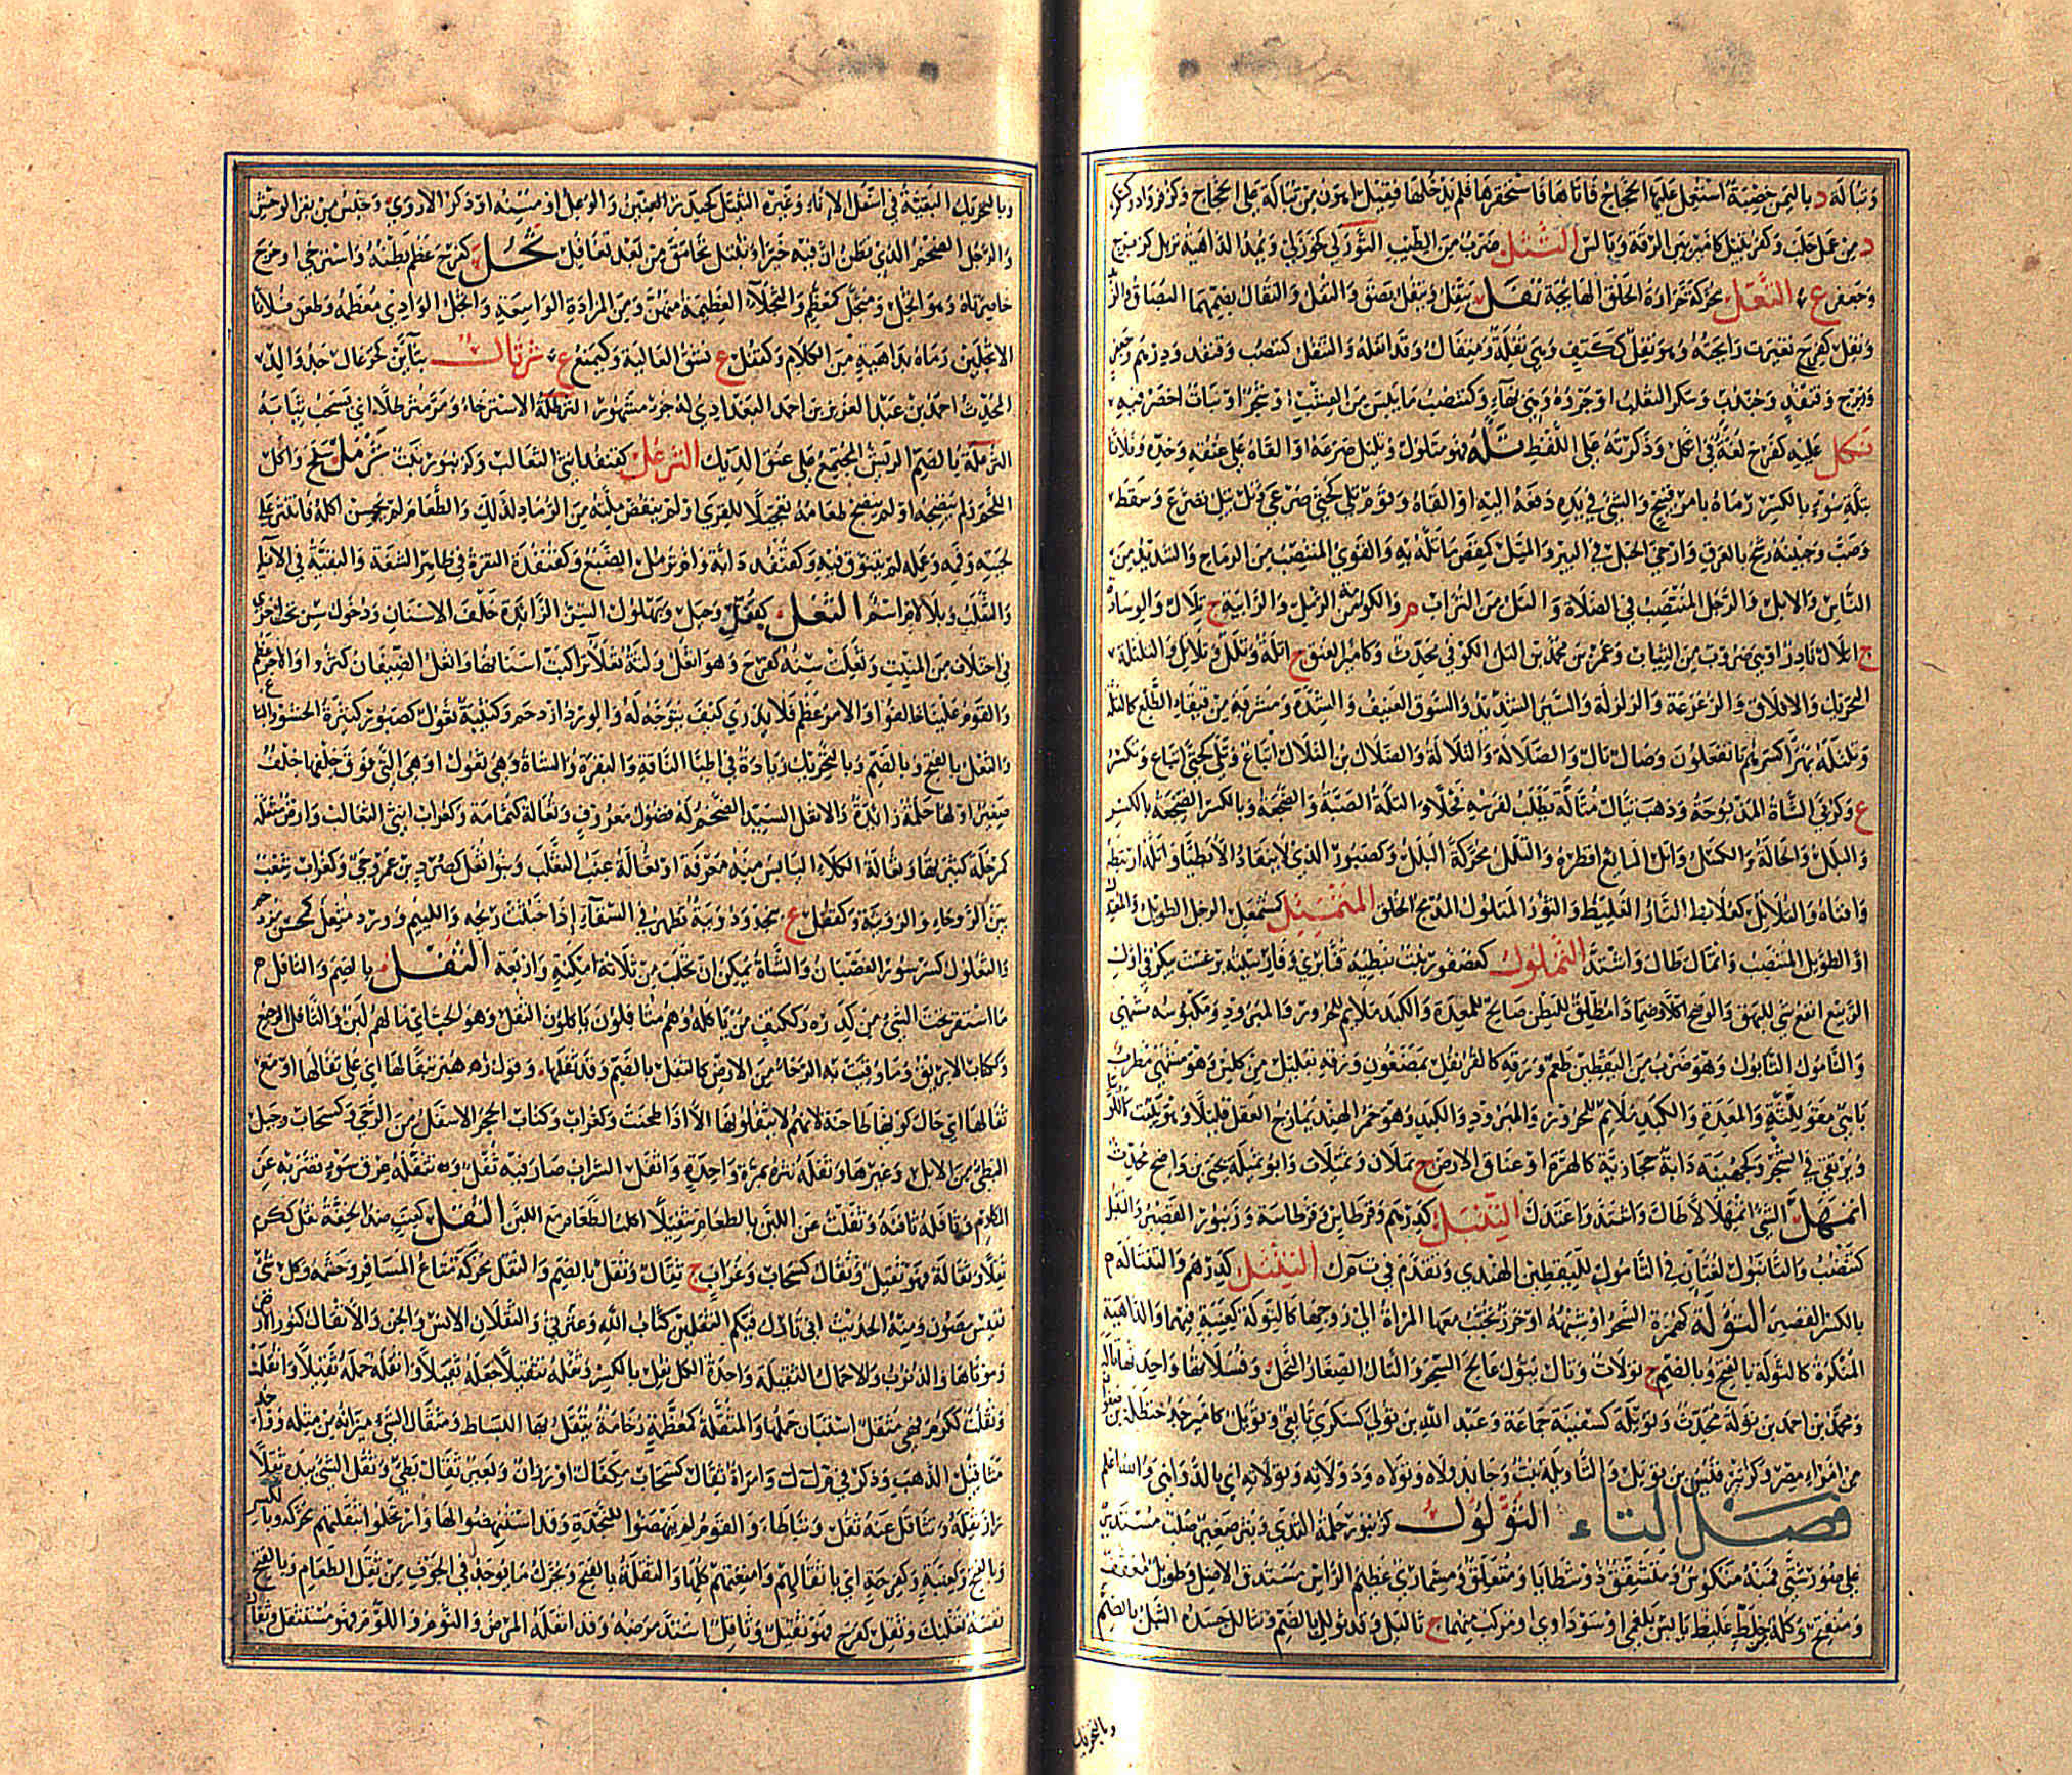 وتبالة د باليمن خصبة استعمل عليها الحجاج فاتاها فاستحقرها فلم يدخلها فقيل اهون من تبالة على الحجاج وكزفر واد وكسكر
د من عمل حلب وكفر تبيل كامير بين الرقة وبالس التثل ضرب من الطيب
وجعفر ع التفل محركة حرارة الحلق الهائجة تفل يتفل ويتفل بصق والتفل والتفال بضمهما البصاق والزبد
وتفل كفرح تغيرت رائحته وهو تفل ككتف وهي تفلة ومتفال وقد اتفله والتتفل كتنضب وقنفذ ودرهم وجعفر
وزبرج وقنفذ وجندب وسكر الثعلب او جروه وهي بهاء وكتنضب ما يبس من العشب او شجر او نبات اخضر فيه
تكل عليه كفرح لغة في اتكل وذكرته على اللفظ تله فهو متلول وتليل صرعه او القاه على عنقه وخده وفلانا
بتلة سوء بالكسر رماه بامر قبيح والشئ في يده دفعه اليه او القاه وقوم تلى كحتى صرعى وتل يتل تصرع وسقط
وصب وجبينه رشح بالعرق وارخى الحبل في البئر والمتل كمقص ما تله به والقوي المنتصب من الرماح والشديد من
الناس والابل والرجل المنتصب في الصلاة والتل من التراب م والكومة من الرمل والرابية ج تلال والوسادة
ج اتلال نادر او هي ضروب من الثياب وعمر بن محمد بن التل الكوفي محدث وكامير العنق ج اتلة وتلل وتلاتل والتلتلة
التحريك والاقلاق والزعزعة والزلزلة والسير الشديد والسوق العنيف والشدة ومشربة من قيقاء الطلع كالتلة
وتلتلة بهرآ كسرهم تا تفعلون وضال تال والضلالة والتلالة والضلال بن التلال اتباع وتلى كحتى اتباع وتكسر
ع وكربى الشاة المذبوحة وذهب يتال متالة يطلب لفرسه فحلا والتلة الصبة والضجعة وبالكسر الضجعة بالكسر
والبلل والحالة والكسل واتل المائع اقطره والتلل محركة البلل وكصبور الذي لا ينقاد الا بطيا واتله ارتبطه
واقتاه والتلاتل كعلابط التار الغليظ والثور المتلول المدمج الخلق المتمئل كمشمعل الرجل الطويل المعتدل
او الطويل المنتصب واتمال طال واشتد التملول كعصفور نبت
الربيع انفع شئ للبهق والوضح اكلا وضمادا مطلق للبطن صالح للمعدة والكبد ملايم للمحرور والمبرود ومكبوسه مشهي
والتامول التانبول وهو ضرب من اليقطين طعم ورقه كالقرنفل يمضغون ورقه بقليل من كلس وهو مشهي مطرب
باهي مقو للثة والمعدة والكبد ملايم للمحرور والمبرود والكبد وهو خمر الهند يمازج العقل قليلا
ويرتقي في الشجر وكجهينة دابة حجازية كالهرة او عناق الارض ج تملان وتميلات وابو تميلة يحيى بن واضح محدث
اتمهل الشئ اتمهلالا طال واشتد واعتدل التنبل كدرهم وقرطاس وقرطاسة وزنبور القصير والتنبل
كتنضب والتانبول لغتان في التامول لليقطين الهندي وتقدم في ت م ل التنتل كدرهم والتنتالة
بالكسر القصير التولة كهمزة السحر او شبهه او خرز تحبب معها المراة الى زوجها كالتولة كعنبة فيهما والداهية
المنكرة كالتولة بالفتح وبالضم ج تولات وتال يتول عالج السحر والتال الصغار النخل وفسلانها واحدتها تالة
ومحمد بن احمد بن تولة محدث وتويلة كسفينة جماعة وعبد الله بن تولى كسكرى تابعي وتويل كامير جد حنظلة بن صفوان
من امراء مصر وكزبير قليس بن تويل والتاويلة نبت وجاء بدولاه وتولاه ودولاته وتولاته اي بالدواهي والله اعلم
فصل الثاء الثؤلول كزنبور حلمة الثدي وبثر صغير صلب مستدير
على صور شتى فمنه منكوس ومتشقق ذو شظايا ومتعلق ومسماري عظيم الراس مستدق الاصل وطويل معقف
ومنفتح وكله من خلط غليظ يابس بلغمي او سوداوي او مركب منهما ج ثآليل وقد ثؤلل بالضم وتثالل جسده الثبل بالضم
وبالتحريك
وبالتحريك البقية في اسفل الاناء وغيره الثيتل كحيدر العنين والوعل او مسنه او ذكر الاروى وجنس من بقر الوحش
والرجل الضخم الذي تظن ان فيه خيرا وثيتل تحامق من بعد تعاقل ثجل كفرح عظم بطنه واسترخى او خرج
خاصرتاه وهو اثجل ومثجل كمعظم والثجلاء العظيمة منهن ومن المزادة الواسعة والثجل الوادي معظمه وطعن فلانا
الاثجلين رماه بداهية من الكلام وكقفل ع بشق العالية وكيمنع ع ثرثال بثآءين كخزعال جد والد
المحدث احمد بن عبد العزيز بن احمد البغدادي له جزء مشهور الثرطلة الاسترخاء ومر مثرطلا اي يسحب ثيابه
الثرعلة بالضم الريش المجتمع على عنق الديك الثرغل كقنفذ انثى الثعالب وكزنبور نبت ثرمل سلح واكل
اللحم ولم ينضجه او لم ينضج طعامه تعجيلا للقرى او لم ينفض ملته من الرماد لذلك والطعام لم يحسن اكله فانتثر على
لحيته وفمه وعمله لم يتنوق فيه وكقنفذ دابة وام ثرمل الضبع وكقنفذة النقرة في ظاهر الشفة والبقية في الاناء
والثعلب وبلا لام اسم الثعل كقفل وجبل وبهلول السن الزائدة خلف الاسنان او دخول سن تحت اخرى
في اختلاف من المنبت وثعلت سنه كفرح وهو اثعل ولثة ثعلآ تراكبت اسنانها واثعل الضيفان كثروا او الامر عظم
والقوم علينا خالفوا والامر عظم فلا يدرى كيف يتوجه له والورد ازدحم وكتيبة ثعول كصبور كثيرة الحشو والتباع
والثعل بالفتح وبالضم وبالتحريك زيادة في اطباء الناقة والبقرة والشاة وهي ثعول او هي التي فوق خلفها خلف
صغير او لها حلمة زائدة والاثعل السيد الضخم له فضول معروف وثعالة كثمامة وكغراب انثى الثعالب وارض مثعلة
كمرحلة كثيرتها وثعالة الكلاء اليابس منه معرفة او ثعالة عنب الثعلب وبنو ثعل كصرد بن عمرو حي وكغراب شعب
بين الروحاء والرويثة وكقفل ع بنجد ودويبة تظهر في السقاء اذا خبثت ريحه واللئيم وورد مثعل كمحسن مزدحم
والثعلول كسرسور الغضبان والشاة يمكن ان تحلب من ثلاثة امكنة واربعة الثفل بالضم والثافل
ما استقر تحت الشئ من كدره وككتف من ياكله وهم مثافلون ياكلون الثفل وهو الحب اي ما لهم لبن والثافل الرجيع
وككتاب الابريق وما وقيت به الرحى من الارض كالثفل بالضم وقد ثفلها وقول زهير بثفالها اي على ثفالها او مع
ثفالها اي حال كونها طاحنة لانهم لا يثفلونها الا اذا طحنت وكغراب وكتاب الحجر الاسفل من الرحى وكسحاب وجبل
البطئ من الابل وغيرها وثفله نثره بمرة واحدة واثفل الشراب صار فيه ثفل وتثفله عرق سوء قصر به عن
المكارم وثافله ثافنه وثفلت عن اللبن بالطعام تثفيلا اكلت الطعام مع اللبن الثقل كعنب ضد الخفة ثقل ككرم
ثقلا وثقالة فهو ثقيل وثقال كسحاب وغراب ج ثقال وثقل بالضم والثقل محركة متاع المسافر وحشمه وكل شئ
نفيس مصون ومنه الحديث اني تارك فيكم الثقلين كتاب الله وعترتي والثقلان الانس والجن والاثقال كنوز الارض
وموتاها والذنوب والاحمال الثقيلة واحدة الكل ثقل بالكسر وثقله تثقيلا جعله ثقيلا واثقله حمله ثقيلا واثقلت
وثقلت ككرم فهي مثقل استبان حملها والمثقلة كمعظمة رخامة يثقل بها البساط ومثقال الشئ ميزانه من مثله
مثاقيل الذهب وذكر في م ك ك وامراة ثقال كسحاب مكفال او رزان وبعير ثقال بطئ وثقل الشئ بيده ثقلا
راز ثقله وتثاقل عنه ثقل وتباطا والقوم لم ينهضوا للنجدة وقد استنهضوا لها وارتحلوا بثقلتهم محركة وبالكسر
وبالفتح وكعنبة وكفرحة اي باثقالهم وامتعتهم كلها والثقلة بالفتح ويحرك ما يوجد في الجوف من ثقل الطعام وبالفتح
نعسة تغلبك وثقل كفرح فهو ثقيل وثاقل اشتد مرضه وقد اثقله المرض والنوم واللؤم فهو مستثقل